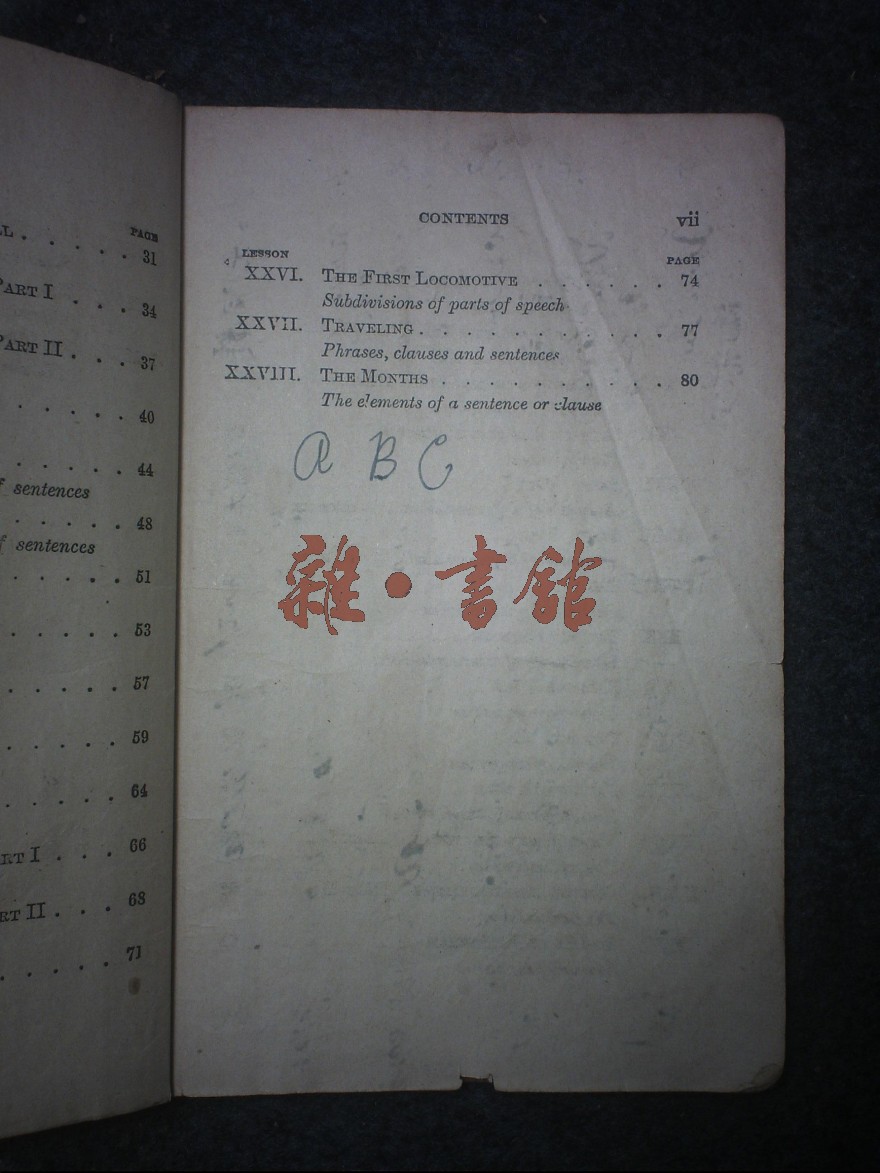 PAGE
31
PART I . . . 34
PART II . . . 37
. . . . 40
. . . . . 44
sentences
. . . . . 48
of sentences
. . . . . 51
. . . . . 53
. . . . . 57
. . . . . 59
. . . . . 64
PART I . . . 66
PART II . . . 68
. . . . . 71
CONTENTS vii
LESSON PAGE
XXVI. THE FIRST LOCOMOTIVE . . . . . . 74
Subdivisions of parts of speech
XXVII. TRAVELING . . . . . . . . . . . 77
Phrases, clauses and sentences
XXVIII. THE MONTHS . . . . . . . . . . 80
The elements of a sentence or clause
A B C
雜·書館